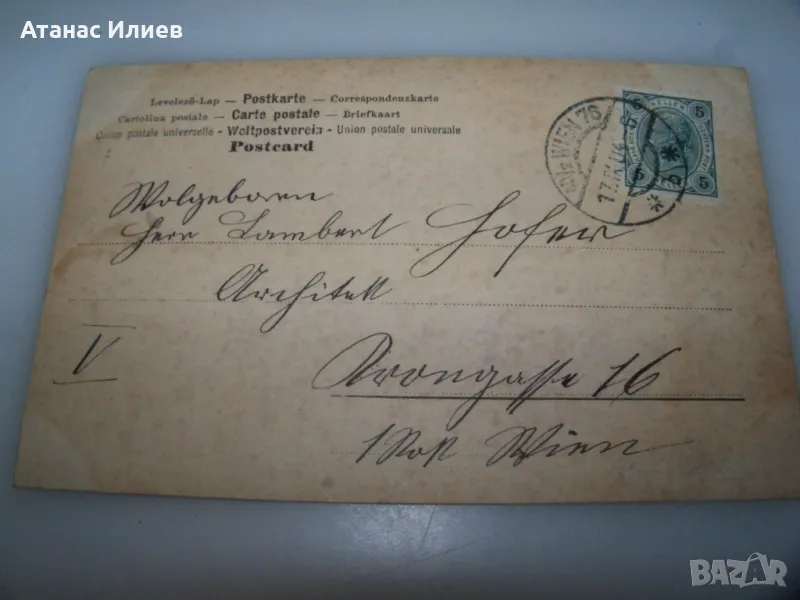 Атанас Илиев
Levelező-Lap — Postkarte — Correspondenzkarte
Cartolina postale — Carte postale — Briefkaart
Union postale universelle - Weltpostverein - Union postale universale
Postcard
WIEN 76
HELLER
5 5
5 5
Wolgeboren
Herr Lambert Hofer
Architekt
V
Krongasse 16
1 Stock Wien
BAZAR